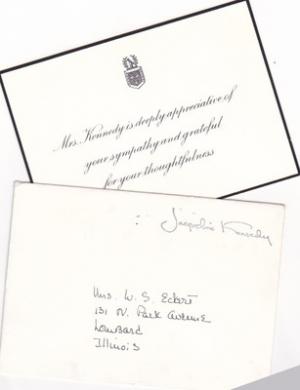 Mrs. Kennedy is deeply appreciative of
your sympathy and grateful
for your thoughtfulness
Jacqueline Kennedy
Mrs. W. S. Eckert
131 N. Park Avenue
Lombard
Illinois